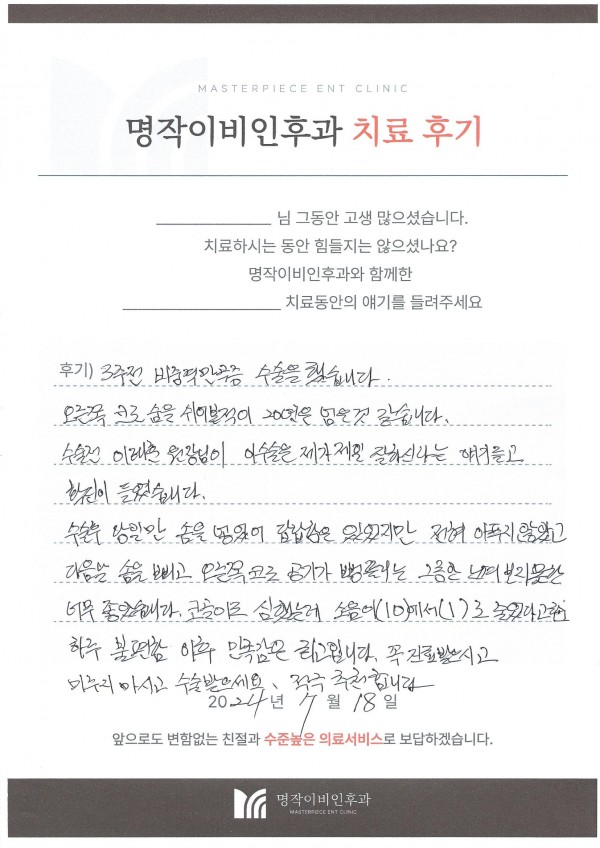 MASTERPIECE ENT CLINIC
명작이비인후과 치료 후기
님 그동안 고생 많으셨습니다.
치료하시는 동안 힘들지는 않으셨나요?
명작이비인후과와 함께한
치료동안의 얘기를 들려주세요
후기) 3주전 비중격만곡증 수술을 했습니다.
오른쪽 코로 숨을 쉬어본적이 20년은 넘은것 같습니다.
수술전 원장님이 이수술은 제가 제일 잘하신다는 얘기를 듣고
확신이 들었습니다.
수술후 당일만 솜을 넣었어 답답함은 있었지만 전혀 아푸지 않았고
다음날 솜을 빼고 오른쪽 코로 공기가 뻥 뚤리는
너무 좋았습니다. 코골이도 심했는데 소음이 (10)에서 (1)로 줄었다고함
하루 불편함 이후 만족감은 최고입니다. 꼭 진료받으시고
미루지 마시고 수술받으세요. 적극 추천합니다
2024년 7월 18일
앞으로도 변함없는 친절과 수준높은 의료서비스로 보답하겠습니다.
명작이비인후과
MASTERPIECE ENT CLINIC